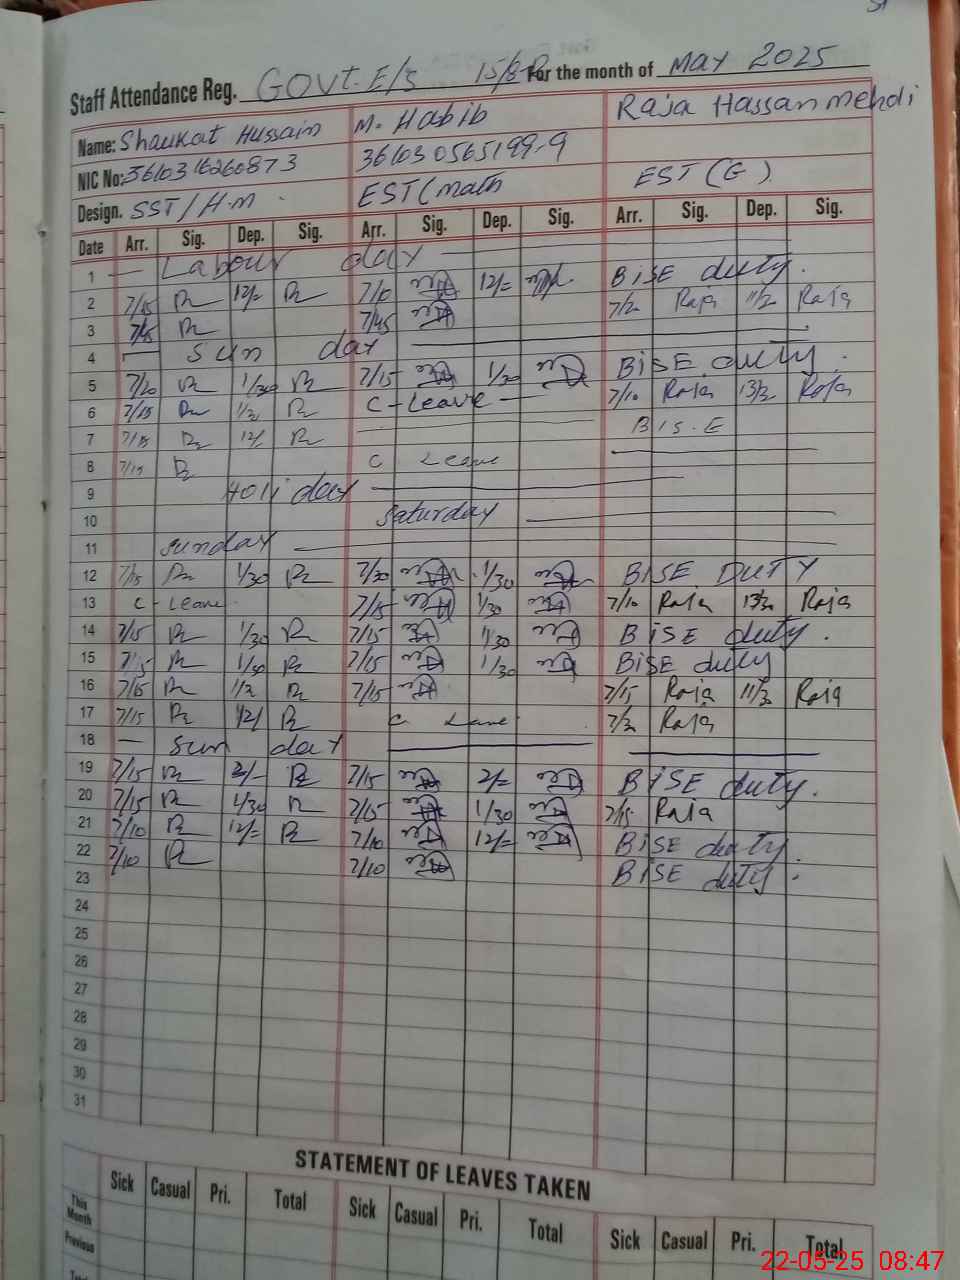 Staff Attendance Reg. GOVt. E/s 15/8-R For the month of may 2025
Name: Shaukat Hussain M. Habib Raja Hassan mehdi
NIC No: 3610316260873 361030565199-9
Design. SST/H.m. EST(math EST(G)
Date Arr. Sig. Dep. Sig. Arr. Sig. Dep. Sig. Arr. Sig. Dep. Sig.
1 — Labour day — BiSE duty.
2 7/15 12/= 7/10 12/= 7/20 Raja 11/2 Raja
3 7/45 7/45
4 — Sun day — BiSE duty.
5 7/20 1/30 7/15 1/30 7/10 Raja Raja
6 7/15 C-Leave — BiS.E
7 7/15 12/
8 7/15 C Leave
9 Holiday —
10 Saturday —
11 Sunday —
12 7/15 1/30 7/30 1/30 BISE DUTY
13 C-Leave 7/15 1/30 7/10 Raja Raja
14 7/15 1/30 7/15 1/30 BiSE duty.
15 7/15 1/30 7/15 1/30 BiSE duty
16 7/15 7/15 7/15 Raja Raja
17 7/15 12/ C Leave 7/2 Raja
18 — Sun day —
19 7/15 2/- 7/15 2/= BiSE duty.
20 7/15 1/30 7/15 1/30 7/15 Raja
21 7/10 12/= 7/10 12/= BiSE duty.
22 7/10 7/10 BiSE duty.
23
24
25
26
27
28
29
30
31
STATEMENT OF LEAVES TAKEN
Sick Casual Pri. Total Sick Casual Pri. Total Sick Casual Pri. Total
This Month
Previous
22-05-25 08:47